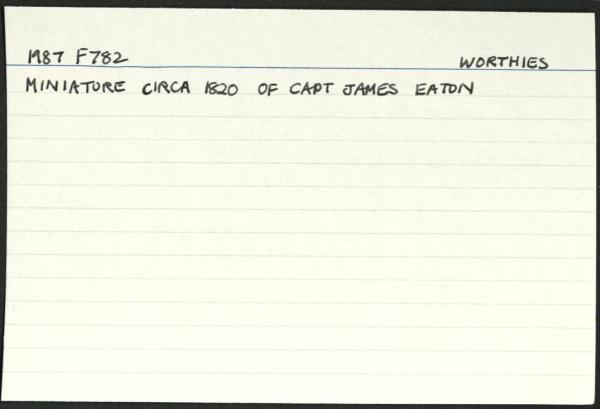 1987 F782 WORTHIES
MINIATURE CIRCA 1820 OF CAPT JAMES EATON